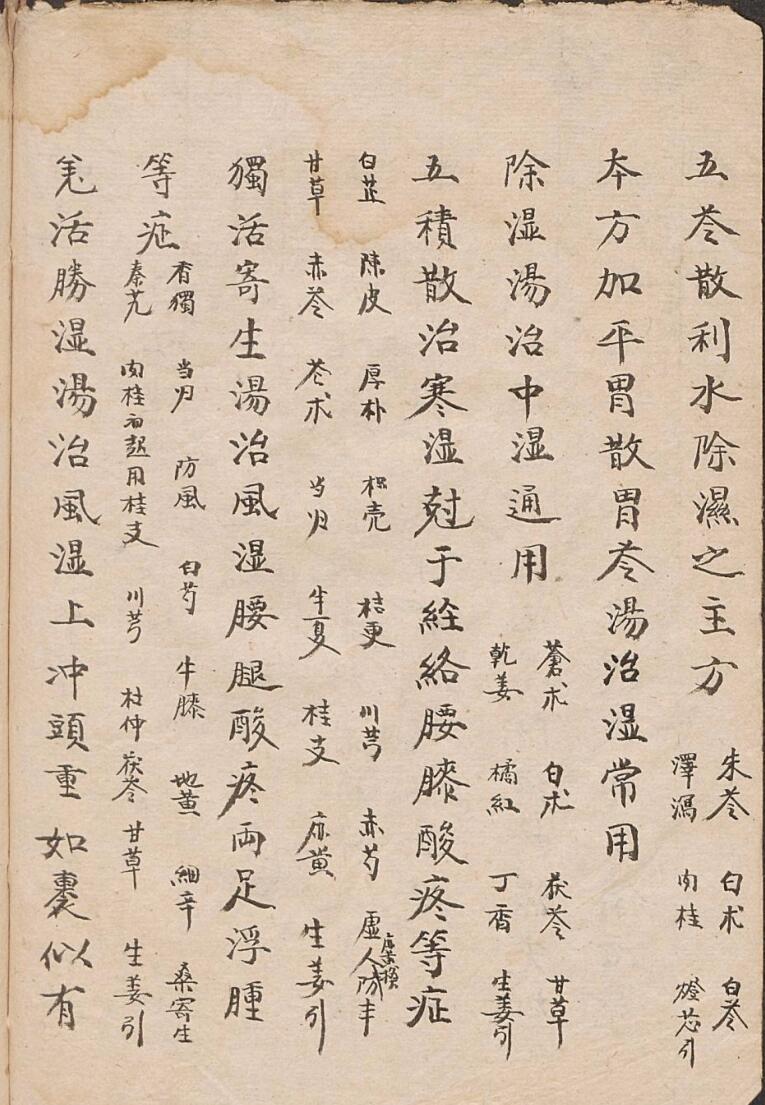 五苓散利水除濕之主方
朱苓 白术 白苓
澤瀉 肉桂 燈芯引
本方加平胃散胃苓湯治湿常用
除湿湯治中湿通用
蒼术 白术 茯苓 甘草
乾姜 橘紅 丁香 生姜引
五積散治寒湿尅于経絡腰膝酸疼等症
白芷 陳皮 厚朴 枳壳 桔更 川芎 赤芍 虚人防丰
甘草 赤苓 苍术 当归 半夏 桂支 麻黄 生姜引
獨活寄生湯治風湿腰腿酸疼両足浮腫
等症
香獨 当归 防風 白芍 牛膝 地黄 細辛 桑寄生
秦艽 肉桂 用桂支 川芎 杜仲 茯苓 甘草 生姜引
羌活勝湿湯治風湿上冲頭重如裹似有